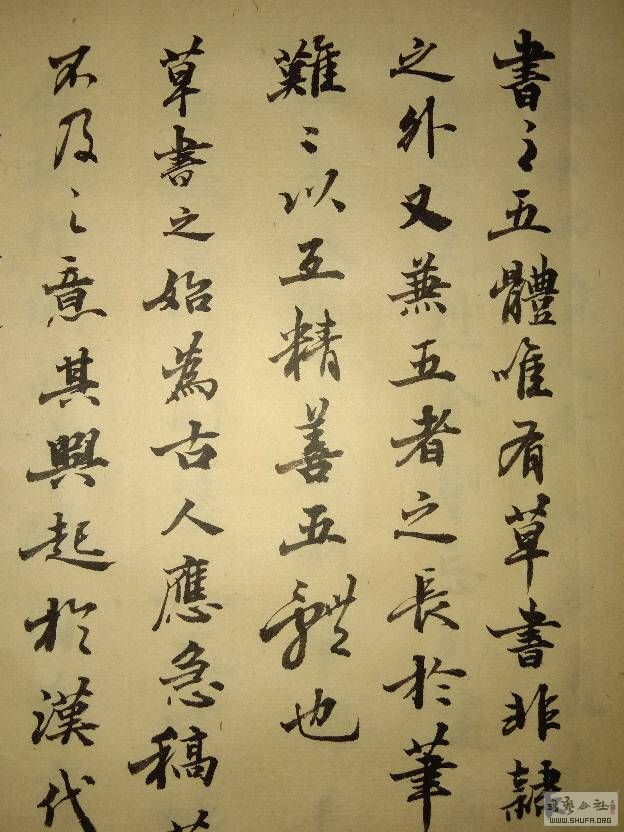 書之五體唯有草書非隸
之外又兼五者之長於筆
難之以互精善五體也
草書之始為古人應急稿草
不及之意其興起於漢代
WWW.SHUFA.ORG